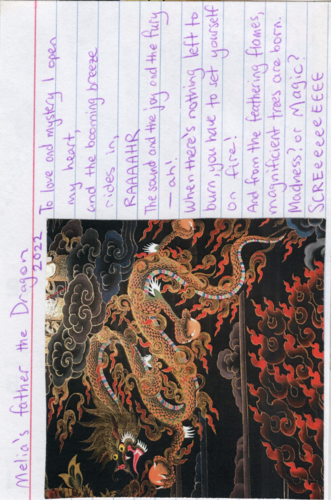 Melia's father the Dragon
2022
To love and mystery I open
my heart,
and the booming breeze
rides in,
RAAAAHR
The sound and the joy and the fury
– ah!
When there's nothing left to
burn, you have to set yourself
on fire!
And from the feathering flames,
magnificent trees are born.
Madness? or Magic?
SCREeeeeeEEEE